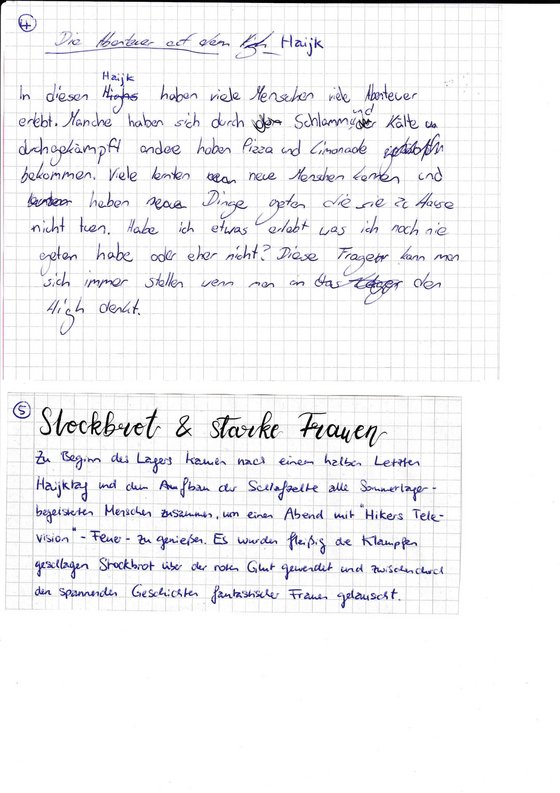 4
Die Abenteuer auf dem Haijk
Haijk
In diesen haben viele Menschen viele Abenteuer
erlebt. Manche haben sich durch Schlamm und Kälte
durchgekämpft andere haben Pizza und Limonade
bekommen. Viele lernten neue Menschen kennen und
haben Dinge getan die sie zu Hause
nicht tuen. Habe ich etwas erlebt was ich noch nie
getan habe oder eher nicht? Diese Frage kann man
sich immer stellen wenn man an den
High denkt.
5
Stockbrot & starke Frauen
Zu Beginn des Lagers kamen nach einem halben Letzten
Haijktag und dem Aufbau der Schlafzelte alle Sommerlager-
begeisterten Menschen zusammen, um einen Abend mit "Hikers Tele-
vision" - Feuer - zu genießen. Es wurden fleißig die Klampfen
geschlagen Stockbrot über der roten Glut gewendet und zwischendurch
den spannenden Geschichten fantastischer Frauen gelauscht.